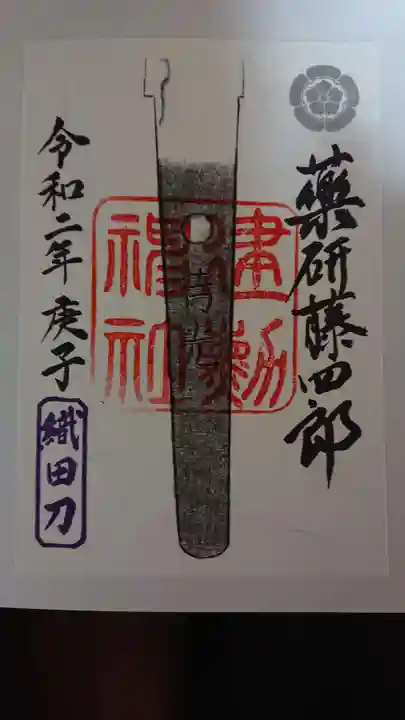 薬研藤四郎
建勲
神社
吉光
令和二年庚子
織田刀